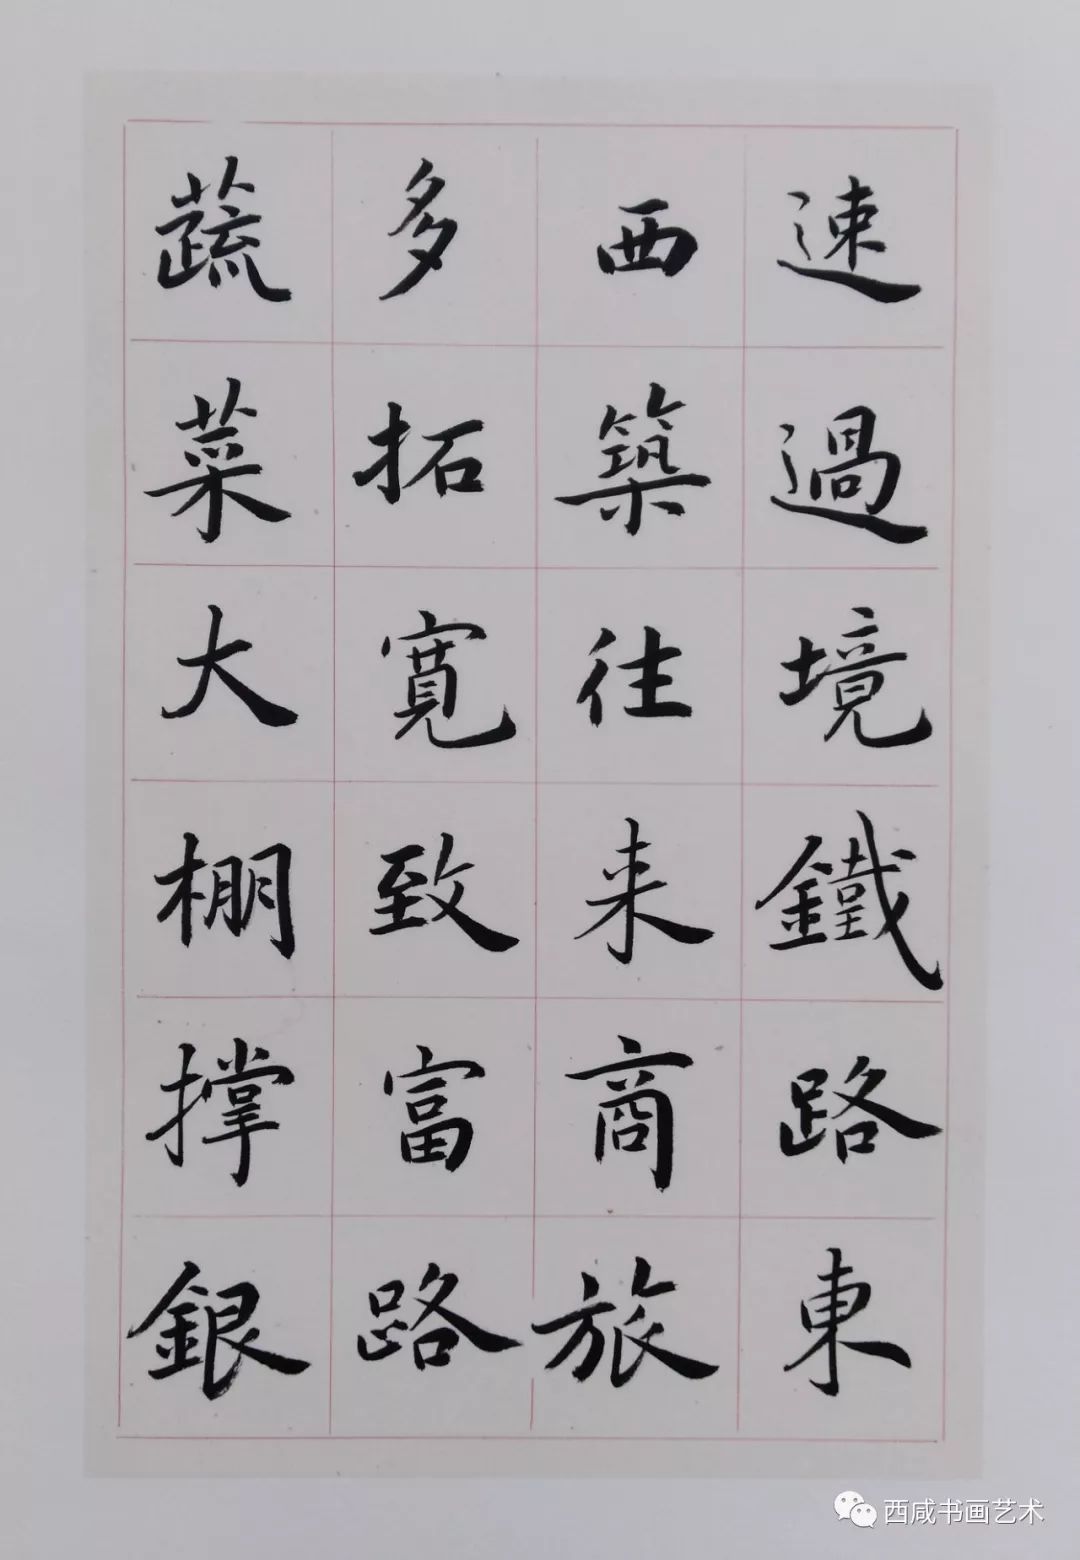 速過境鐵路東
西築往来商旅
多拓寬致富路
蔬菜大棚撑銀
西咸书画艺术